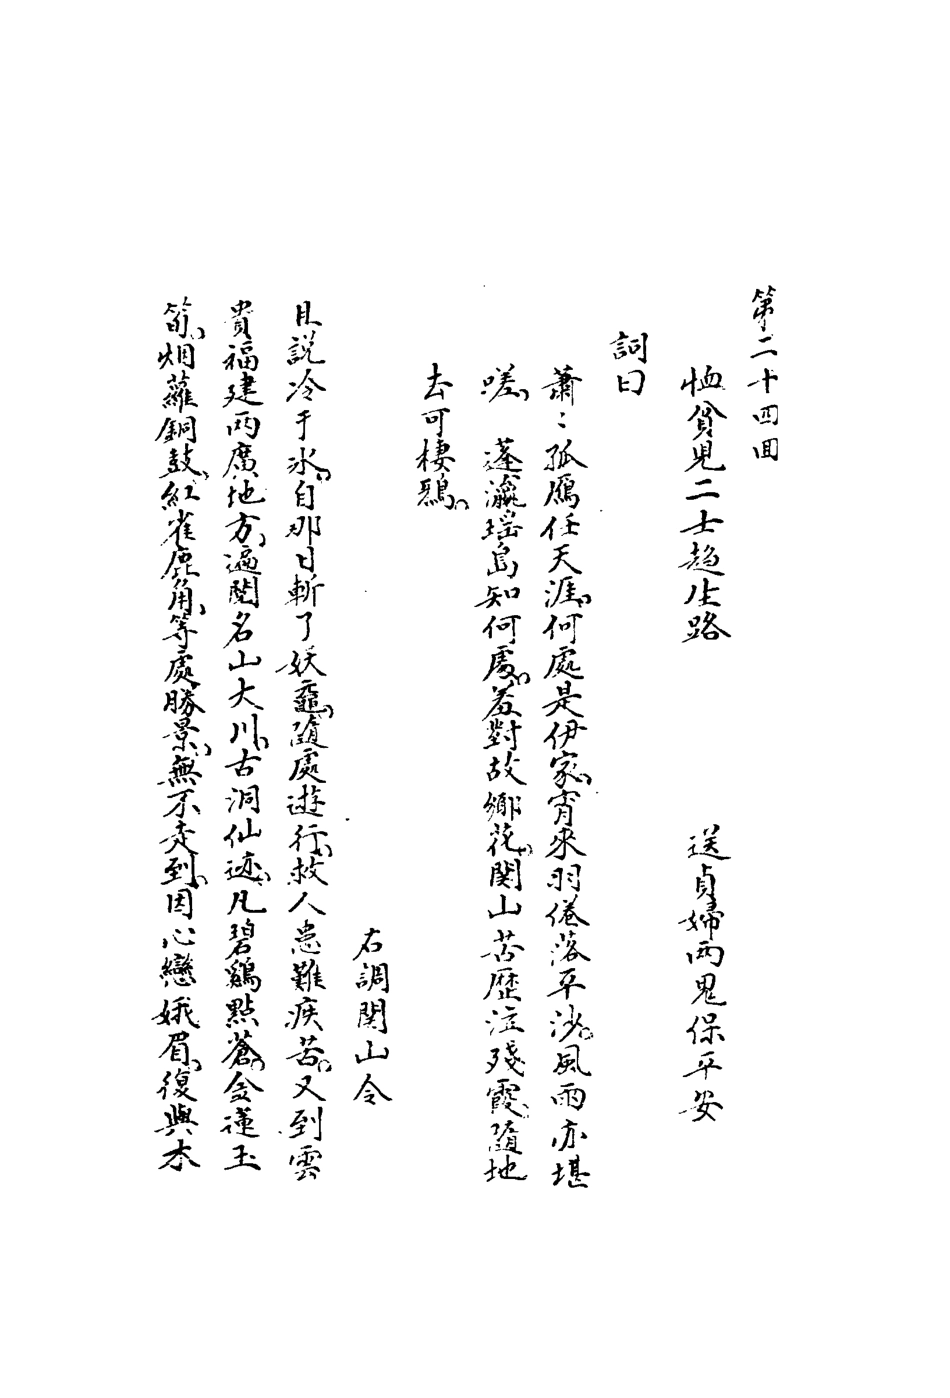 第二十四回
恤貧児二士趋生路　送貞婦両鬼保平安
詞曰
蕭〻孤鴈任天涯，何處是伊家，宵來羽倦落平沙，風雨亦堪
嗟，蓬瀛瑶島知何處，羞對故鄉花，関山苦歷泣殘霞，隨地
去可棲鴉，
右調関山令
且說冷于氷，自那日斬了妖黿，隨處遊行，救人患難疾苦，又到雲
貴福建兩廣地方，遍閱名山大川，古洞仙迹，凡碧鷄點蒼，金蓮玉
筍，烟蘿銅鼓，紅雀鹿角，等處勝景，無不走到，因心戀娥眉，復與木